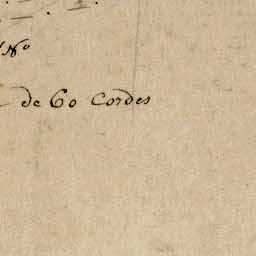 N°
de 60 Cordes